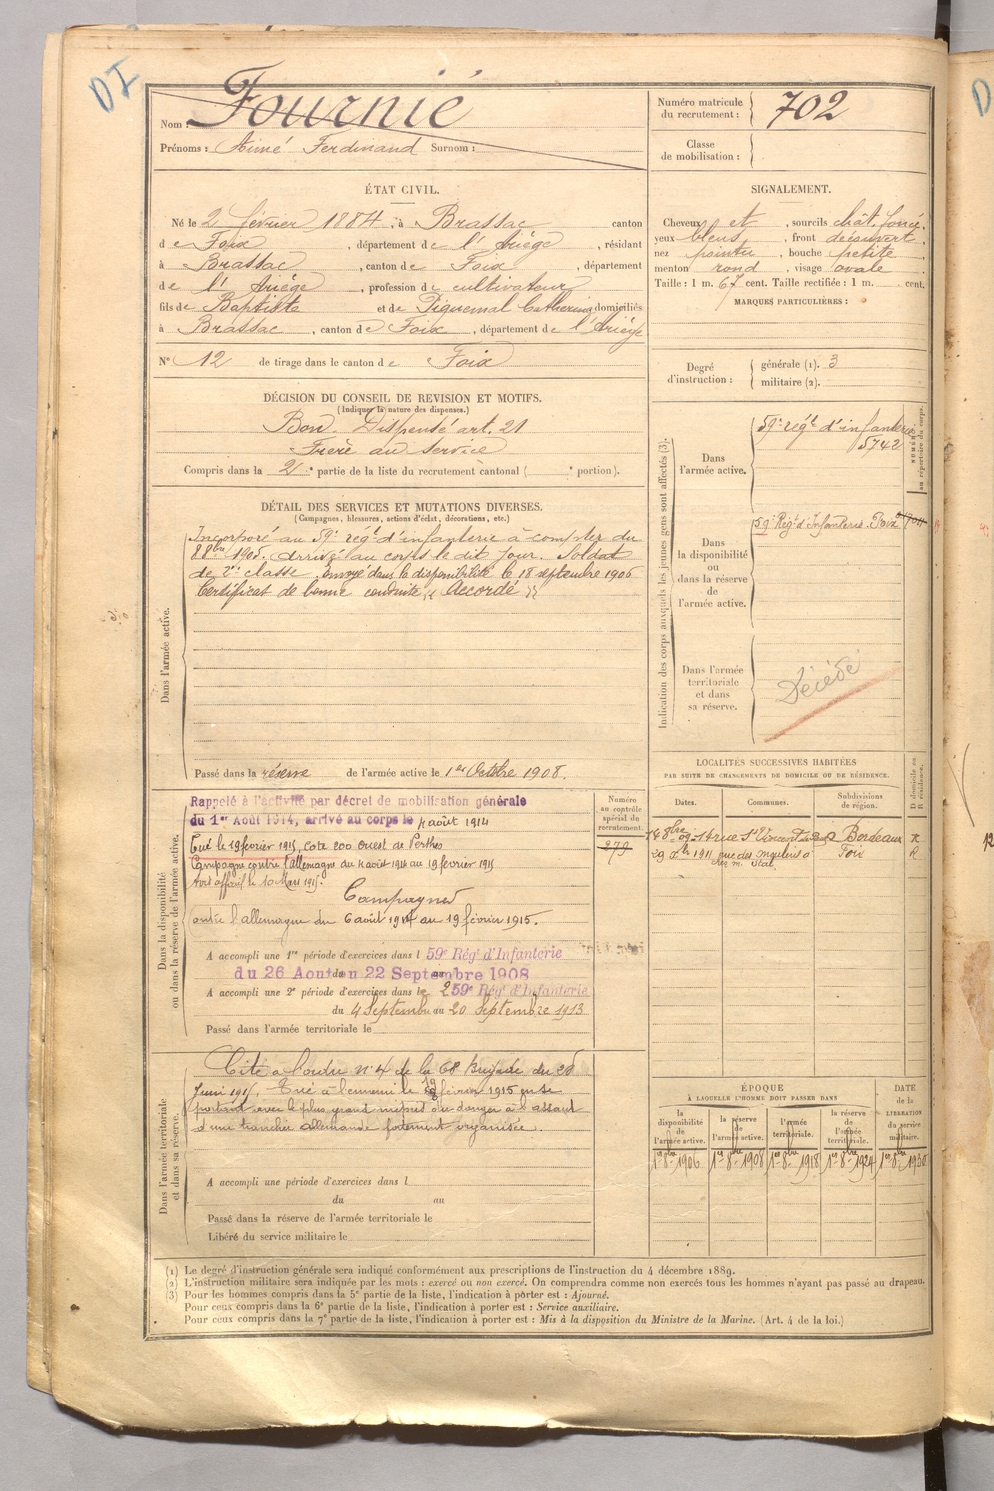 DI
Nom : Fournié
Prénoms : Aimé Ferdinand Surnom :
Numéro matricule du recrutement : 702
Classe de mobilisation :
ÉTAT CIVIL.
Né le 2 février 1884, à Brassac canton
de Foix, département de l'Ariège, résidant
à Brassac, canton de Foix, département
de l'Ariège, profession de cultivateur
fils de Baptiste et de Piquemal Catherine domiciliés
à Brassac, canton de Foix, département de l'Ariège
N° 12 de tirage dans le canton de Foix
SIGNALEMENT.
Cheveux et, sourcils chât. foncé,
yeux bleus, front découvert,
nez pointu, bouche petite,
menton rond, visage ovale
Taille : 1 m. 67 cent. Taille rectifiée : 1 m. cent.
MARQUES PARTICULIÈRES :
Degré d'instruction :
générale (1). 3
militaire (2).
DÉCISION DU CONSEIL DE REVISION ET MOTIFS.
(Indiquer la nature des dispenses.)
Bon. Dispensé art. 21
Frère au service
Compris dans la 2e partie de la liste du recrutement cantonal ( e portion).
DÉTAIL DES SERVICES ET MUTATIONS DIVERSES.
(Campagnes, blessures, actions d'éclat, décorations, etc.)
Dans l'armée active.
Incorporé au 59e régt d'infanterie à compter du
8 8bre 1905. Arrivé au corps le dit jour. Soldat
de 2me classe. Envoyé dans la disponibilité le 18 septembre 1906
Certificat de bonne conduite « Accordé »
Passé dans la réserve de l'armée active le 1er Octobre 1908.
Indication des corps auxquels les jeunes gens sont affectés (3).
Dans l'armée active.
59e régt d'infanterie
5742
NUMÉRO au répertoire du corps.
Dans la disponibilité ou dans la réserve de l'armée active.
59e Régt d'Infanterie Foix
Dans l'armée territoriale et dans sa réserve.
Décédé
Dans la disponibilité ou dans la réserve de l'armée active.
Rappelé à l'activité par décret de mobilisation générale
du 1er Août 1914, arrivé au corps le 4 août 1914
Tué le 19 février 1915, cote 200 Ouest de Perthes
Campagne contre l'allemagne du 4 août 1914 au 19 février 1915
Avis officiel le 10 Mars 1915.
Campagnes
contre l'allemagne du 6 août 1914 au 19 février 1915.
A accompli une 1re période d'exercices dans l 59e Régt d'Infanterie
du 26 Aout au 22 Septembre 1908
A accompli une 2e période d'exercices dans le 59e Régt d'Infanterie
du 4 Septembre au 20 Septembre 1913
Passé dans l'armée territoriale le
Numéro au contrôle spécial du recrutement.
279
LOCALITÉS SUCCESSIVES HABITÉES
PAR SUITE DE CHANGEMENTS DE DOMICILE OU DE RÉSIDENCE.
Dates. Communes. Subdivisions de région. D domicile ou R résidence.
Bordeaux R
Foix R
Dans l'armée territoriale et dans sa réserve.
Cité à l'ordre n° 4 de la 68 Brigade du 20
Juin 1915. Tué à l'ennemi le 19 février 1915 en se
portant avec le plus grand mépris du danger à l'assaut
d'une tranchée allemande fortement organisée.
A accompli une période d'exercices dans l
du au
Passé dans la réserve de l'armée territoriale le
Libéré du service militaire le
ÉPOQUE
À LAQUELLE L'HOMME DOIT PASSER DANS
la disponibilité de l'armée active.
la réserve de l'armée active.
l'armée territoriale.
la réserve de l'armée territoriale.
DATE de la LIBÉRATION du service militaire.
1er 8bre 1906 1er 8bre 1908 1er 8bre 1918 1er 8bre 1924 1er 8bre 1930
(1) Le degré d'instruction générale sera indiqué conformément aux prescriptions de l'instruction du 4 décembre 1889.
(2) L'instruction militaire sera indiquée par les mots : exercé ou non exercé. On comprendra comme non exercés tous les hommes n'ayant pas passé au drapeau.
(3) Pour les hommes compris dans la 5e partie de la liste, l'indication à porter est : Ajourné.
Pour ceux compris dans la 6e partie de la liste, l'indication à porter est : Service auxiliaire.
Pour ceux compris dans la 7e partie de la liste, l'indication à porter est : Mis à la disposition du Ministre de la Marine. (Art. 4 de la loi.)